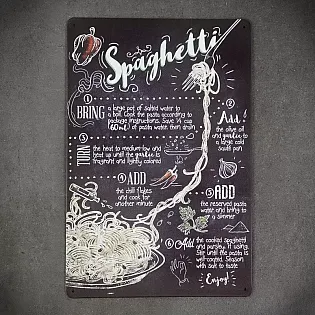 Spaghetti
1
BRING
a large pot of salted water to
a boil. Cook the pasta according to
package instructions. Save 1/4 cup
(60mL) of pasta water then drain
2
Add
the olive oil
and garlic to
a large cold
saute pan
3
TURN
the heat to medium-low and
heat up until the garlic is
fragrant and lightly colored
4
ADD
the chili flakes
and cook for
another minute.
5
ADD
the reserved pasta
water and bring to
a simmer
6
Add
the cooked spaghetti
and parsley. If using,
Stir until the pasta is
well-coated. Season
with salt to taste
Enjoy!